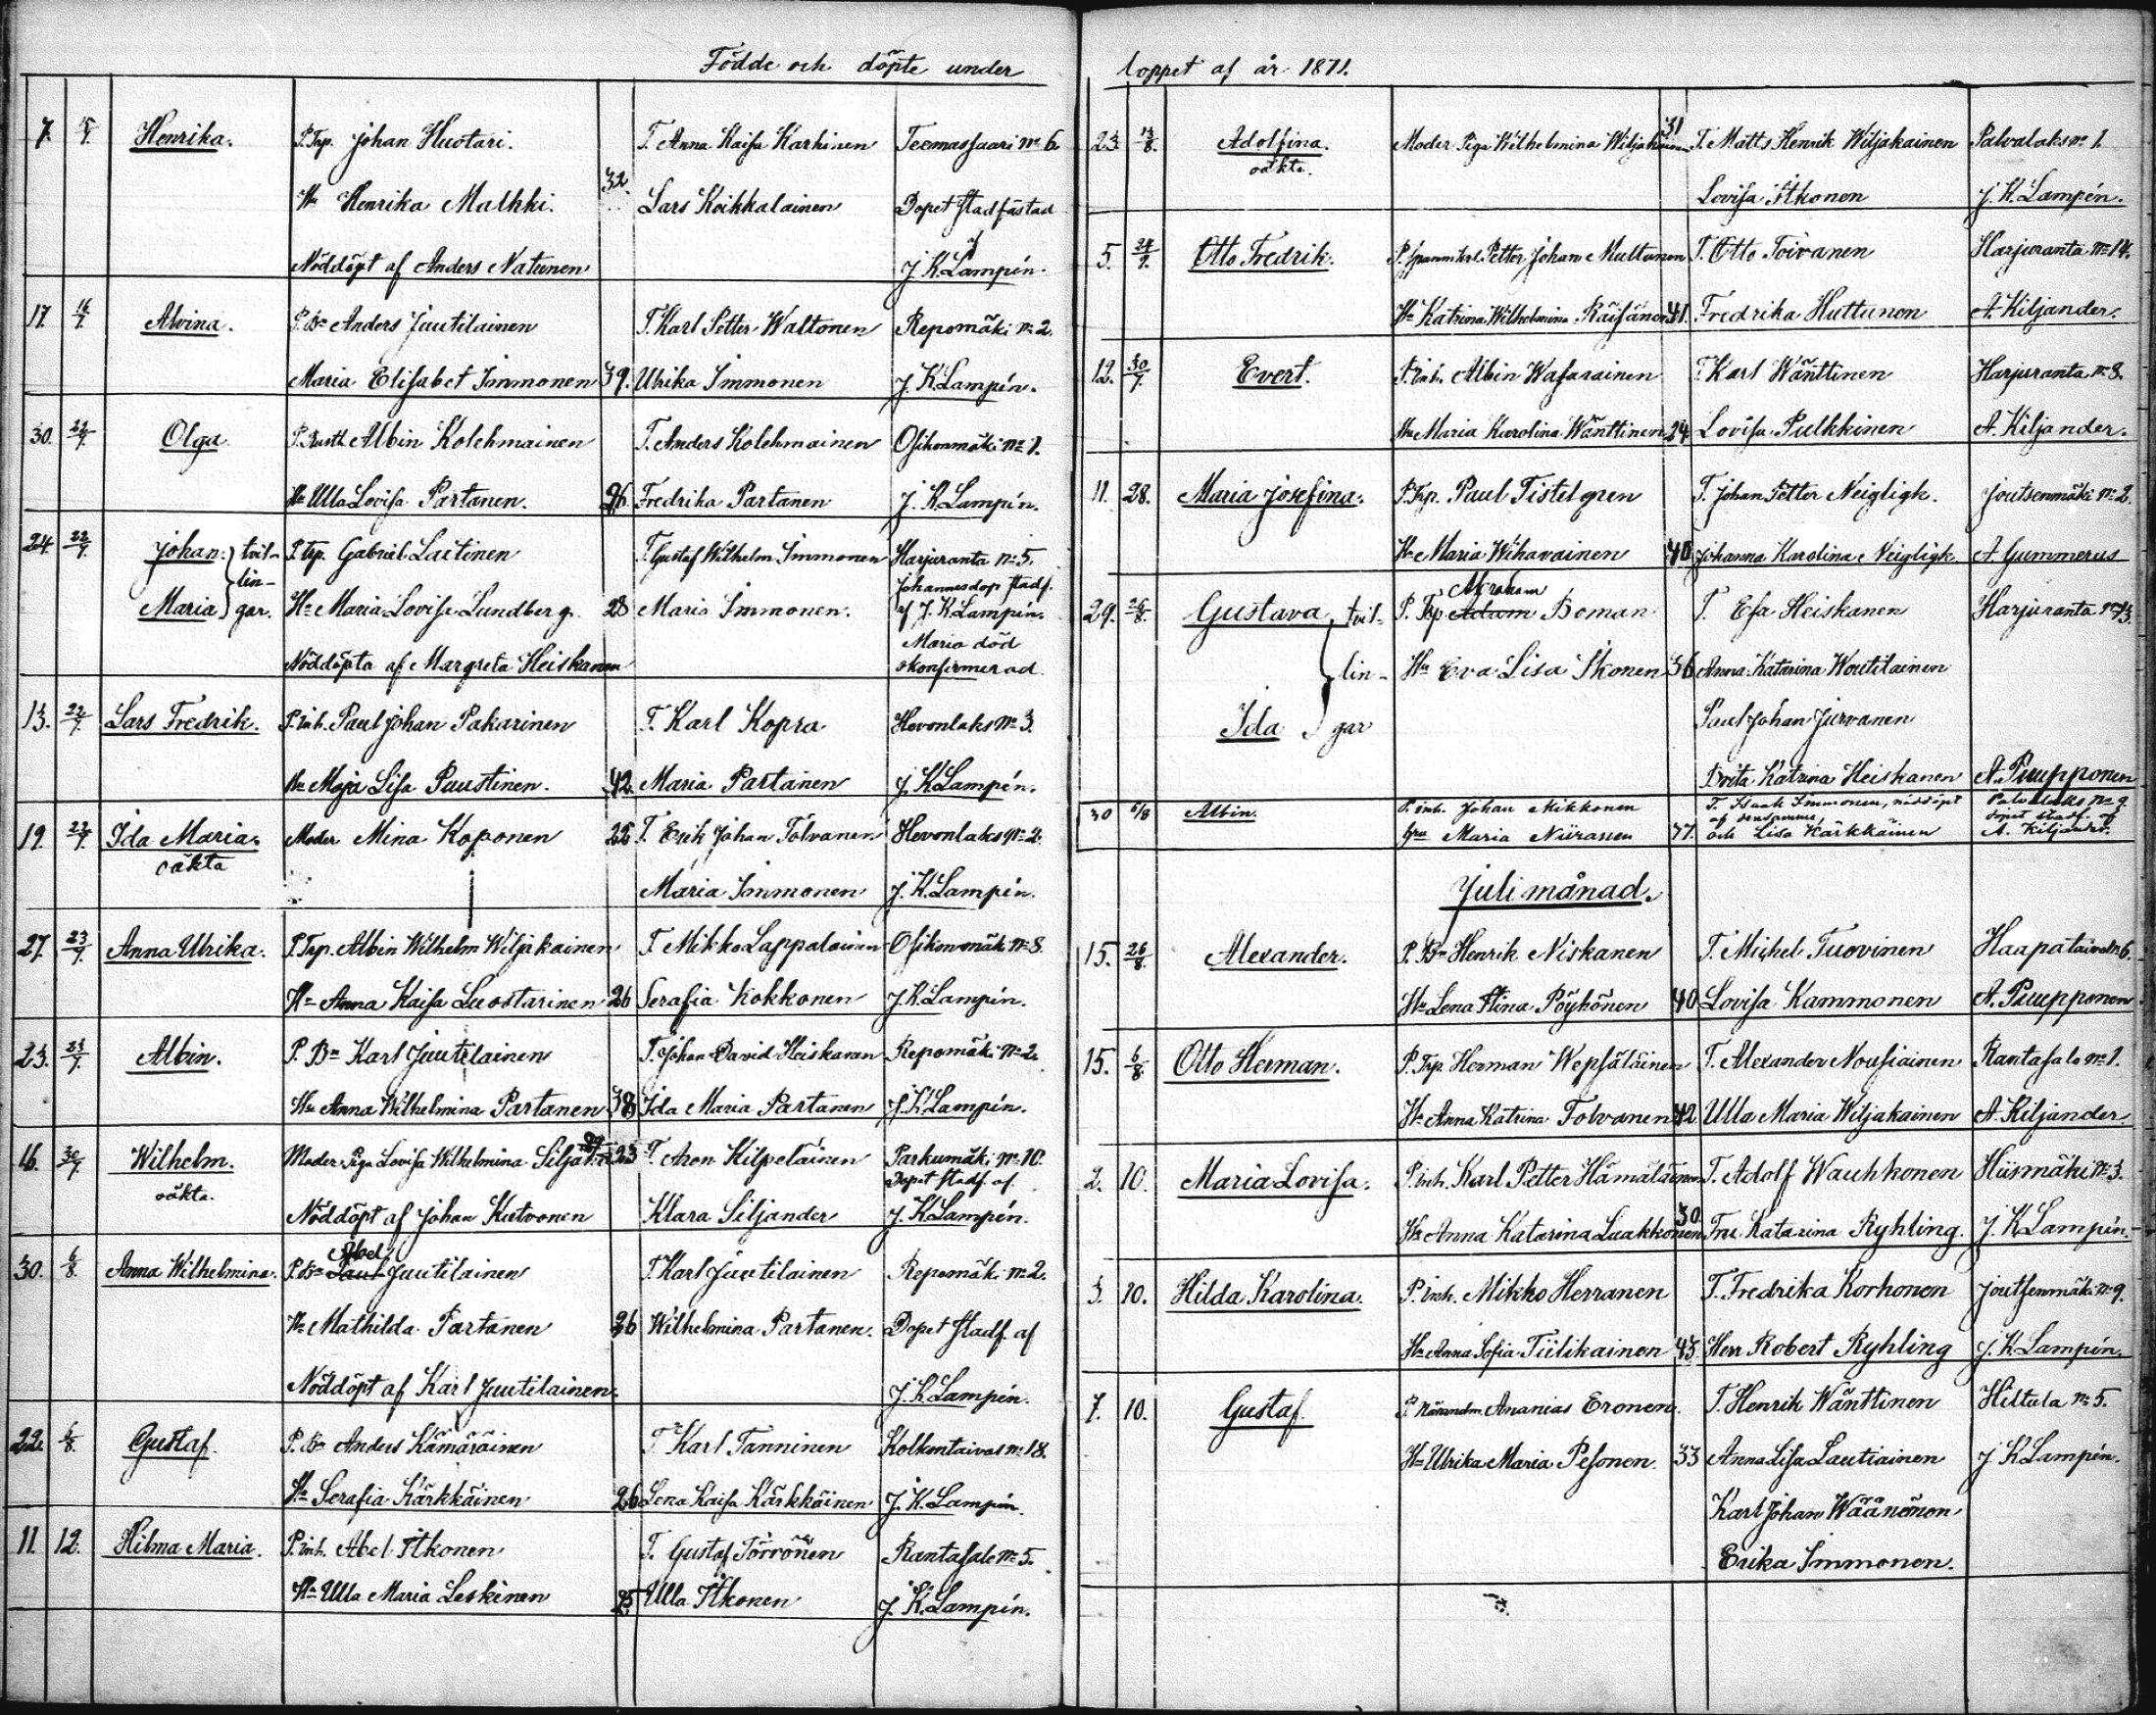 Födde och döpte under
7. 15/7. Henrika. P. Trp. Johan Huotari. T. Anna Kaisa Karhinen Teemassaari No 6.
Hu Henrika Malkki. 32. Lars Koikkalainen Dopet stadfästad
Nöddöpt af Anders Natunen af J. K. Lampén.
17. 16/7. Alvina. P. Bn Anders Juutilainen T. Karl Petter Waltonen Repomäki No 2.
Maria Elisabet Immonen 39. Ulrika Immonen J. K. Lampén.
30. 22/7. Olga P. Rusth. Albin Kolehmainen T. Anders Kolehmainen Osikonmäki No 1.
Hu Ulla Lovisa Partanen. 26 Fredrika Partanen J. K. Lampén.
24. 22/7. Johan. tvil- P. Trp. Gabriel Laitinen T. Gustaf Wilhelm Immonen Harjuranta No 5.
lin- Johannes dop stadf.
Maria gar. Hu Maria Lovisa Lundberg. 28 Maria Immonen. af J. K. Lampén.
Maria död
Nöddöpta af Margreta Heiskanen okonfirmerad.
13. 22/7. Lars Fredrik. P. inh. Paul Johan Pakarinen T. Karl Kopra Hevonlaks No 3.
Hu Maja Lisa Puustinen. 42. Maria Partanen J. K. Lampén.
19. 22/7. Ida Maria. Moder Mina Koponen 22 T. Erik Johan Tolvanen Hevonlaks No 2.
oäkta
Maria Immonen J. K. Lampén.
27. 23/7. Anna Ulrika. P. Trp. Albin Wilhelm Wiljakainen T. Mikko Lappalainen Osikonmäki No 8.
Hu Anna Kaisa Luostarinen 26 Serafia Kokkonen J. K. Lampén.
23. 23/7. Albin. P. Bn Karl Juutilainen T. Johan David Heiskanen Repomäki No 2.
Hu Anna Wilhelmina Partanen 38 Ida Maria Partanen J. K. Lampén.
16. 30/7 Wilhelm. Moder Piga Lovisa Wilhelmina 23 T. Aron Kilpeläinen Parkumäki No 10.
oäkta. Dopet stadf. af
Nöddöpt af Johan Kutvonen Klara Siljander J. K. Lampén.
Abel
30. 6/8. Anna Wilhelmina. P. Bn Paul Juutilainen T. Karl Juutilainen Repomäki No 2.
Hu Mathilda Partanen 26 Wilhelmina Partanen. Dopet stadf. af
Nöddöpt af Karl Juutilainen. J. K. Lampén.
22. 6/8. Gustaf P. Bn Anders Kämäräinen T. Karl Tanninen Kolkontaival No 18.
Hu Serafia Kärkkäinen 26 Lena Kaisa Kärkkäinen J. K. Lampén
11. 12. Hilma Maria. P. inh. Abel Itkonen T. Gustaf Törrönen Rantasalo No 5.
Hu Ulla Maria Leskinen 25 Ulla Itkonen J. K. Lampén.
loppet af år 1871.
23 13/8. Adolfina. Moder Piga Wilhelmina Wiljakainen 31 T. Matts Henrik Wiljakainen Palvalaks No 1.
oäkta.
Lovisa Itkonen J. K. Lampén.
5. 24/9. Otto Fredrik. Petter Johan Multunen T. Otto Toivanen Harjuranta No 14.
Hu Katrina Wilhelmina Räisänen 41. Fredrika Huttunen A. Kiljander.
12. 30/7. Evert. P. inh. Albin Wasarainen T. Karl Wänttinen Harjuranta No 8.
Hu Maria Karolina Wänttinen 24 Lovisa Pulkkinen A. Kiljander.
11. 28. Maria Josefina. P. Trp. Paul Tistelgren T. Johan Petter Neigligk. Joutsenmäki No 2.
Hu Maria Wihavainen 40 Johanna Karolina Neigligk. A. Gummerus
Abraham
29. 26/8. Gustava tvil- P. Trp Adam Boman T. Esa Heiskanen Harjuranta No 13.
lin- Hu Eva Lisa Ikonen 36 Anna Katarina Woutilainen
Ida gar Paul Johan Jurvanen
Brita Katrina Heiskanen A. Puupponen
30 6/8 Albin. P. inh. Johan Mikkonen T. Isaak Immonen, nöddöpt Palvalaks No 9.
af densamme, dopet stadf. af
Hru Maria Niiranen 37. och Lisa Kärkkäinen A. Kiljander.
Juli månad.
15. 26/8. Alexander. P. Bn Henrik Niskanen T. Michel Tuovinen Haapataival No 6.
Hu Lena Stina Pöyhönen 40 Lovisa Kammonen A. Puupponen
15. 6/8. Otto Herman. P. Trp. Herman Wepsäläinen T. Alexander Nousiainen Rantasalo No 1.
Hu Anna Katrina Tolvanen 42 Ulla Maria Wiljakainen A. Kiljander.
2. 10. Maria Lovisa. P. inh. Karl Petter Hämäläinen T. Adolf Wauhkonen Hiismäki No 3.
Hu Anna Katarina Luukkonen 30 Fru Katarina Ryhling. J. K. Lampén.
3. 10. Hilda Karolina. P. inh. Mikko Herranen T. Fredrika Korhonen Joutsenmäki No 9.
Hu Anna Sofia Tiilikainen 43. Herr Robert Ryhling J. K. Lampén.
7. 10. Gustaf. Ananias Eronen. T. Henrik Wänttinen Hiltula No 5.
Hu Ulrika Maria Pesonen. 33 Anna Lisa Lautiainen J. K. Lampén.
Karl Johan Wäänänen
Erika Immonen.